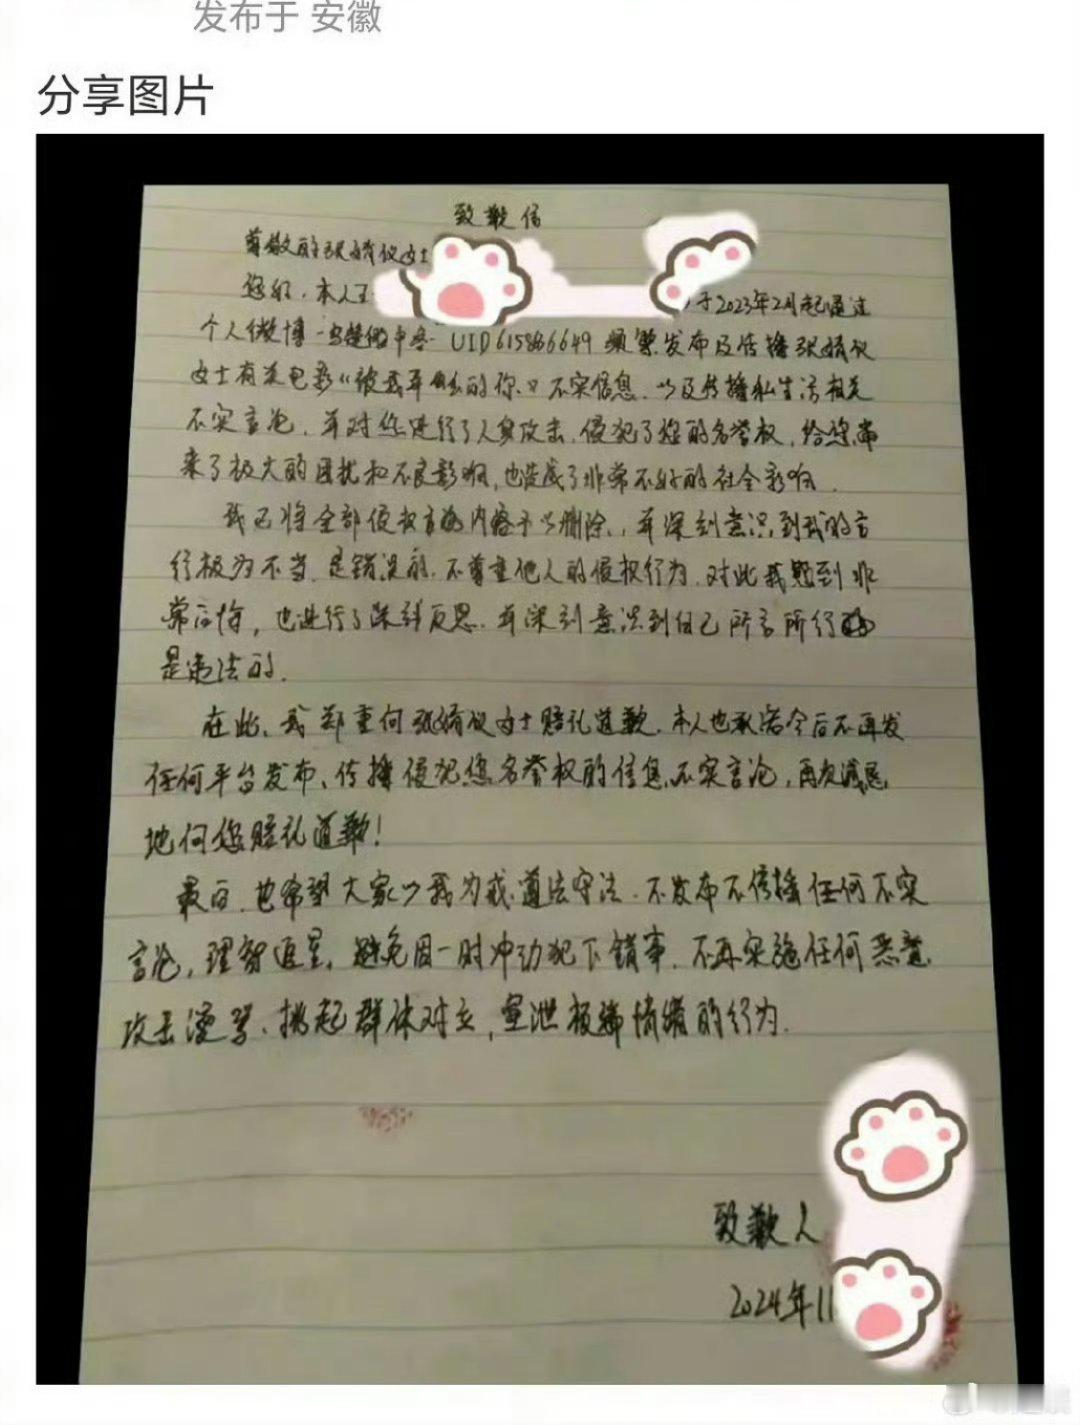 发布于 安徽
分享图片
致歉信
尊敬的张婧仪女士
您好，本人王 于2023年2月起通过
个人微博 UID615866649 频繁发布及传播张婧仪
女士有关电影《被我弄丢的你》不实信息，以及传播私生活相关
不实言论，并对您进行了人身攻击，侵犯了您的名誉权，给您带
来了极大的困扰和不良影响，也造成了非常不好的社会影响。
我已将全部侵权言论内容予以删除，并深刻意识到我的言
行极为不当，是错误的，不尊重他人的侵权行为，对此我感到非
常后悔，也进行了深刻反思，并深刻意识到自己所言所行
是违法的。
在此，我郑重向张婧仪女士赔礼道歉，本人也承诺今后不再发
任何平台发布、传播侵犯您名誉权的信息、不实言论，再次诚恳
地向您赔礼道歉！
最后，也希望大家以我为戒，遵法守法，不发布不传播任何不实
言论，理智追星，避免因一时冲动犯下错事，不再实施任何恶意
攻击谩骂、挑起群体对立，宣泄极端情绪的行为。
致歉人
2024年11